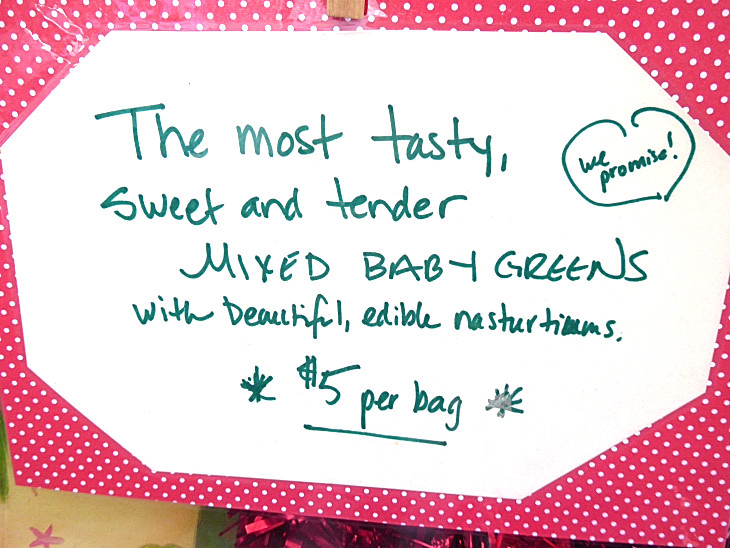 The most tasty,
sweet and tender
MIXED BABY GREENS
with beautiful, edible nasturtiums.
* $5 per bag *
we
promise!